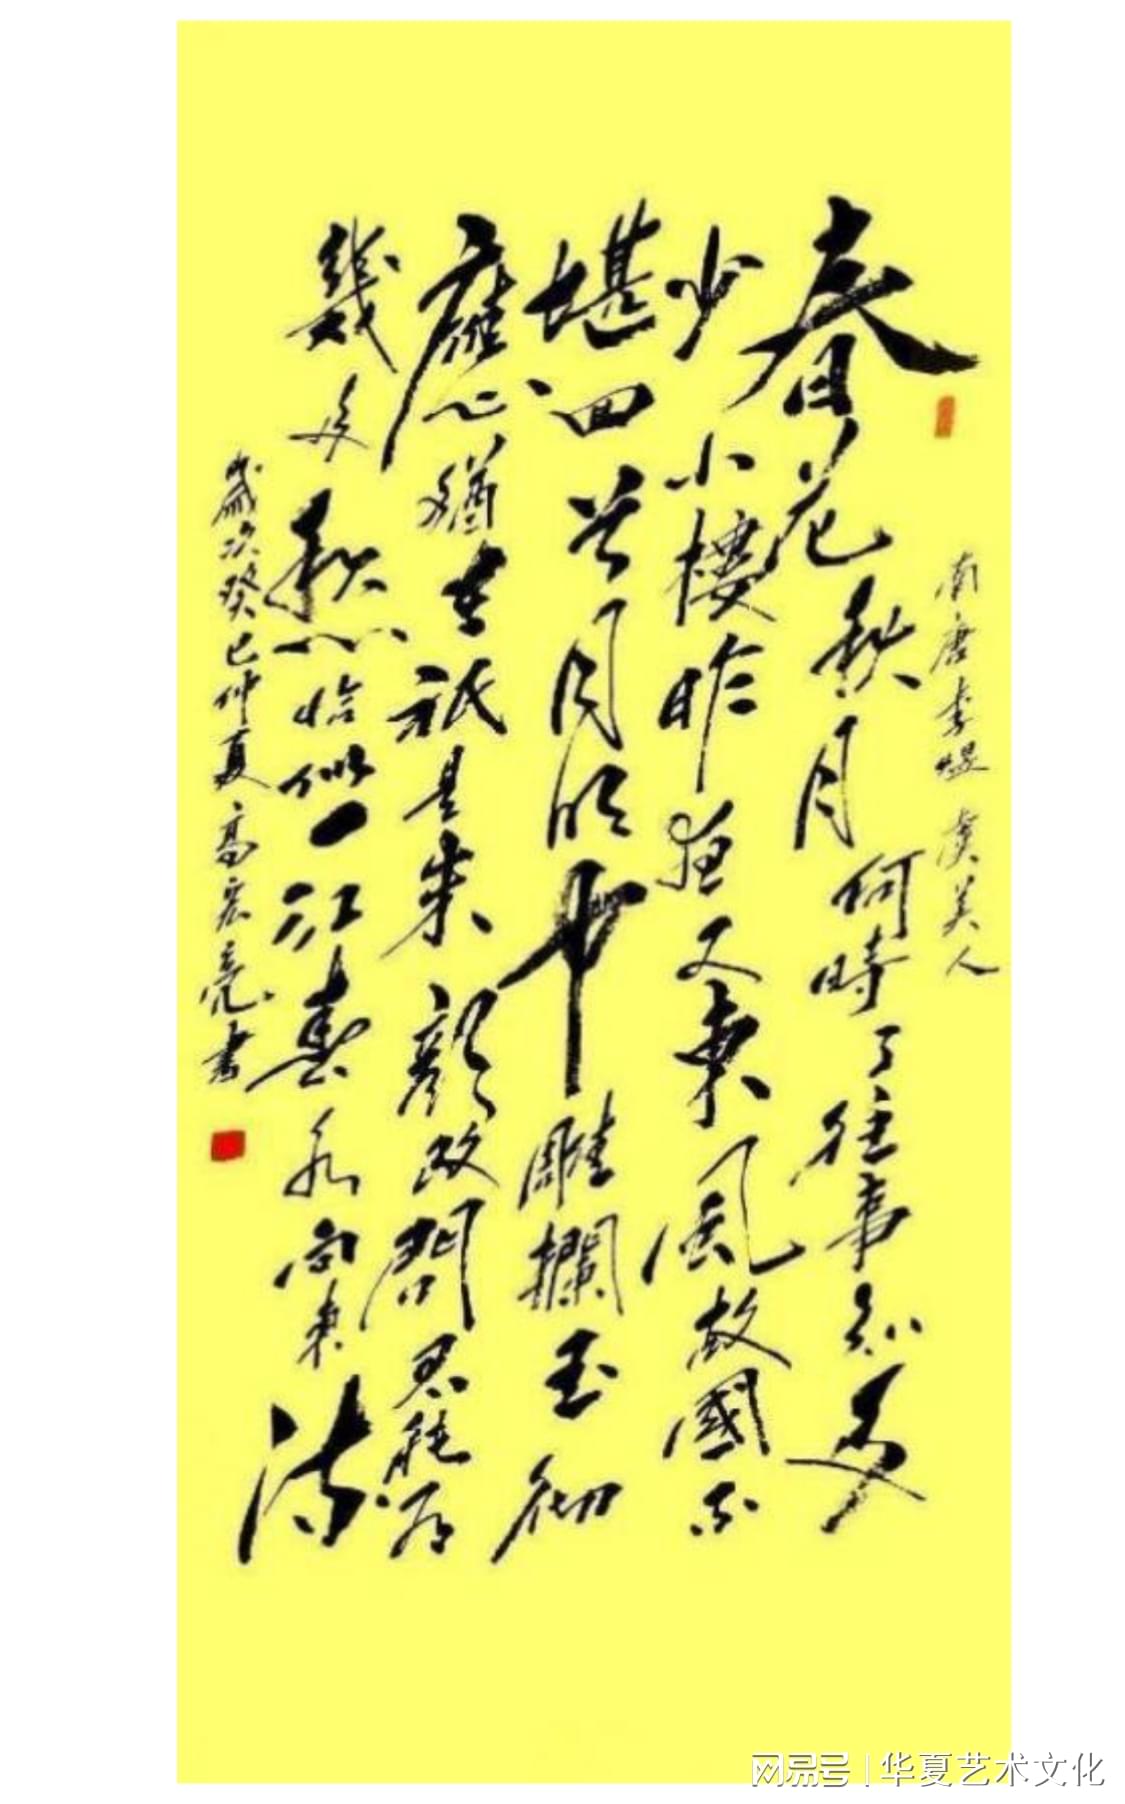 南唐李煜 虞美人
春花秋月何時了往事知多
少小樓昨夜又東風故國不
堪回首月明中雕欄玉砌
應猶在祇是朱顏改問君能有
幾多愁恰似一江春水向東流
歲次癸巳仲夏高宏亮書
网易号 | 华夏艺术文化